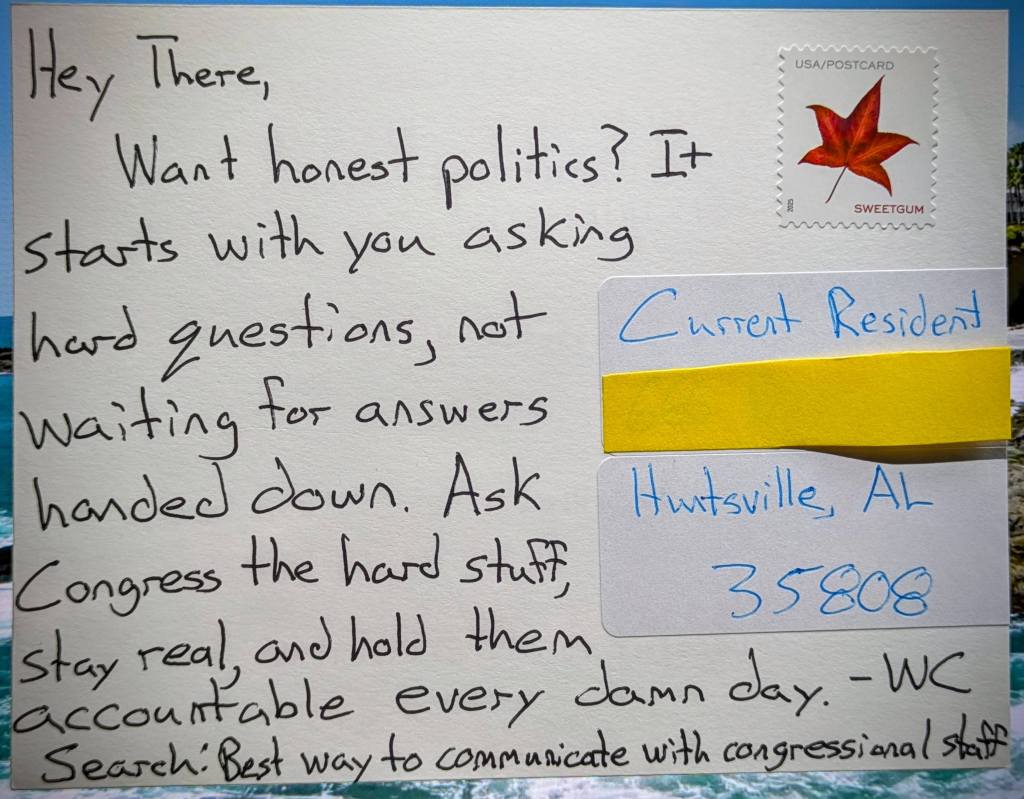 Hey There,
Want honest politics? It
starts with you asking
hard questions, not
waiting for answers
handed down. Ask
Congress the hard stuff,
stay real, and hold them
accountable every damn day. -WC
Search: Best way to communicate with congressional staff
USA/POSTCARD
2025
SWEETGUM
Current Resident
Huntsville, AL
35808